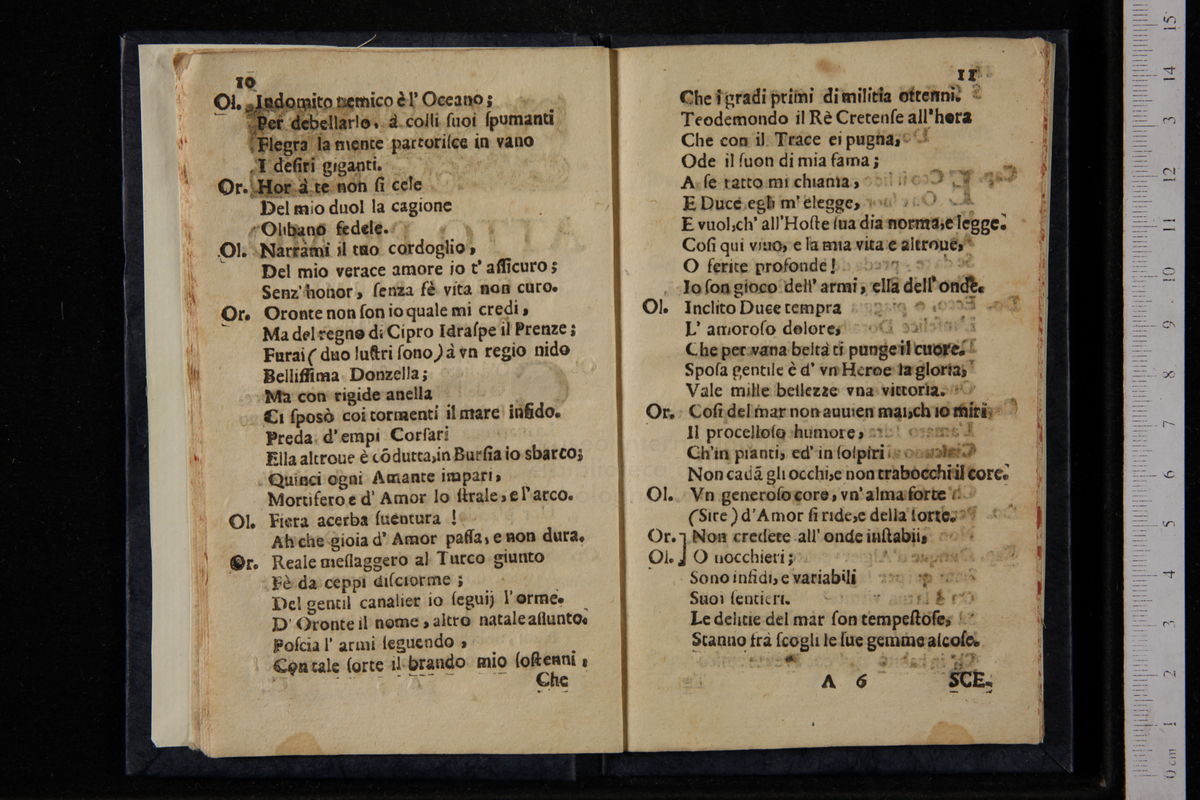 10
Ol. Indomito nemico è l' Oceano;
Per debellarlo, à colli ſuoi ſpumanti
Flegra la mente partoriſce in vano
I deſiri giganti.
Or. Hor à te non ſi cele
Del mio duol la cagione
Olibano fedele.
Ol. Narrami il tuo cordoglio,
Del mio verace amore io t' aſſicuro;
Senz' honor, ſenza fè vita non curo.
Or. Oronte non ſon io quale mi credi,
Ma del regno di Cipro Idraſpe il Prenze;
Furai (duo luſtri ſono) à vn regio nido
Belliſſima Donzella;
Ma con rigide anella
Ci ſposò coi tormenti il mare infido.
Preda d' empi Corſari
Ella altroue è cōdutta, in Burſia io sbarco;
Quinci ogni Amante impari,
Mortifero e d' Amor lo ſtrale, e l' arco.
Ol. Fiera acerba ſuentura !
Ah che gioia d' Amor paſſa, e non dura.
Or. Reale meſſaggero al Turco giunto
Fè da ceppi diſciorme;
Del gentil caualier io ſeguij l'orme.
D' Oronte il nome, altro natale aſſunto.
Poſcia l' armi ſeguendo,
Con tale ſorte il brando mio ſoſtenni,
Che
11
Che i gradi primi di militia ottenni.
Teodemondo il Rè Cretenſe all'hora
Che con il Trace ei pugna,
Ode il ſuon di mia fama;
A ſe ratto mi chiama,
E Duce egli m' elegge,
E vuol, ch' all' Hoſte ſua dia norma, e legge.
Coſi qui viuo, e la mia vita e altroue,
O ferite profonde!
Io ſon gioco dell' armi, ella dell' onde.
Ol. Inclito Duce tempra
L' amoroſo dolore,
Che per vana beltà ti punge il cuore.
Spoſa gentile è d' vn Heroe la gloria,
Vale mille bellezze vna vittoria.
Or. Coſi del mar non auuien mai, ch io miri
Il procelloſo humore,
Ch'in pianti, ed' in ſoſpiri
Non cadā gli occhi, e non trabocchi il core.
Ol. Vn generoſo core, vn' alma forte
(Sire) d' Amor ſi ride, e della ſorte.
Or. Non credete all' onde inſtabili,
Ol. ] O nocchieri;
Sono infidi, e variabili
Suoi ſentieri.
Le delitie del mar ſon tempeſtoſe,
Stanno frà ſcogli le ſue gemme aſcoſe.
A 6 SCE.